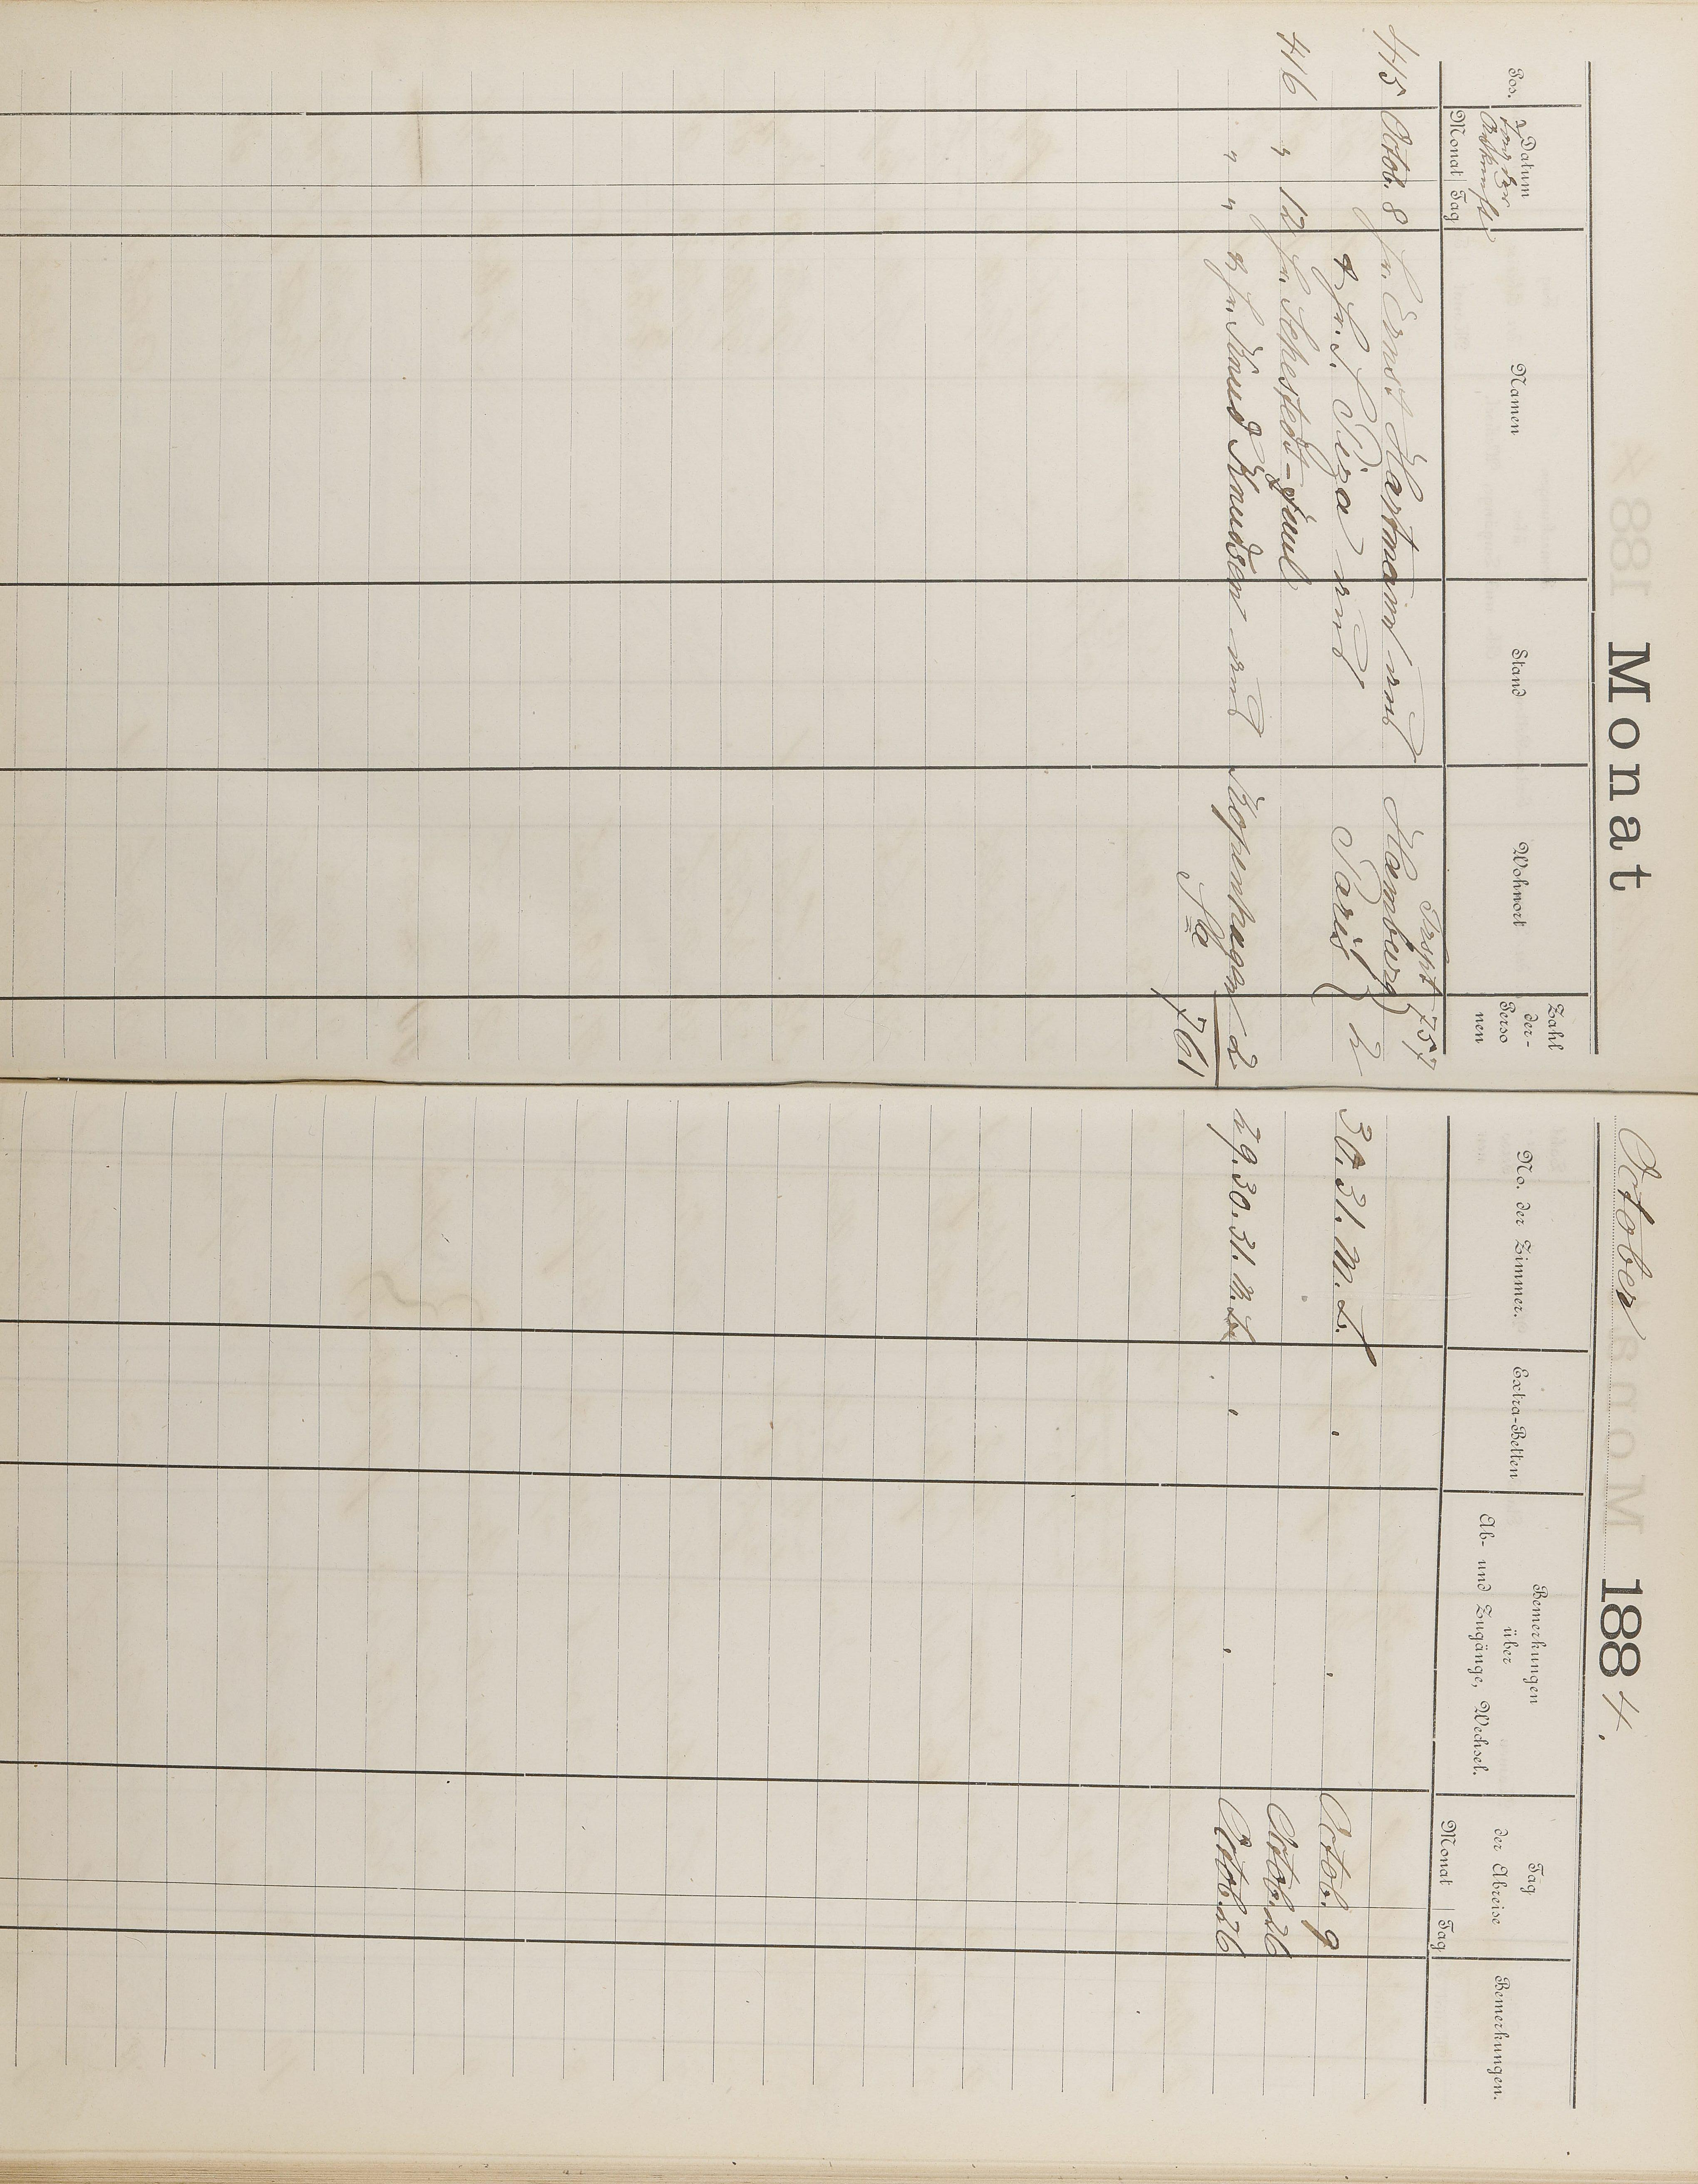 Monat October 1884.
Pos.
Datum
der
Ankunft
Monat Tag
Namen
Stand
Wohnort
Zahl
der
Perso
nen
No. der Zimmer.
Extra-Betten
Bemerkungen
über
Ab- und Zugänge, Wechsel.
Tag
der Abreise
Monat Tag
Bemerkungen.
Trspt 757
415 Octob. 8 Hr. Ernst Hartmann und Hamburg
& Hr. S. Piza und Paris } 2 30. 31. M. L. " " Octob. 9
416 " 12 Hr. Sehestedt-Juul Octob. 26
" " & Hr. Knud Knudsen und Kopenhagen 2 29. 30. 31. M. L. " " Octob. 26
Sa 761